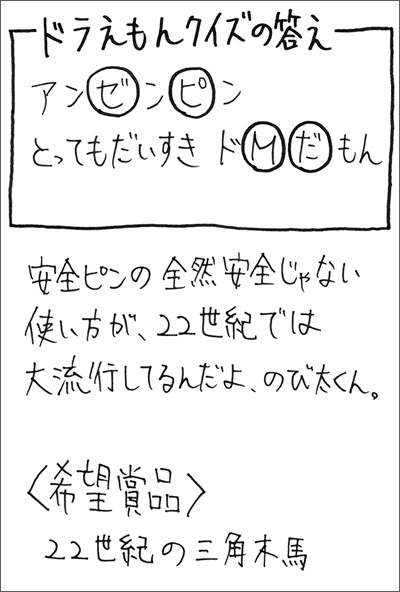 ドラえもんクイズの答え
アンゼンピン
とってもだいすき ドMだもん
安全ピンの全然安全じゃない
使い方が、22世紀では
大流行してるんだよ、のび太くん。
〈希望賞品〉
22世紀の三角木馬